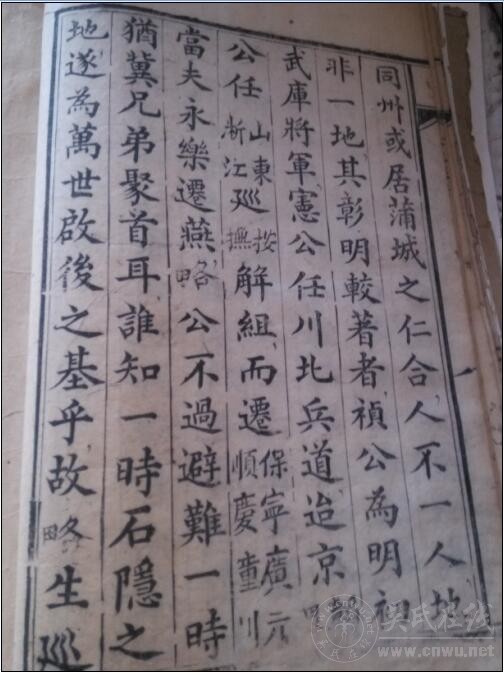 同州或居蒲城之仁合人不一人地
非一地其彰明較著者禎公為明初
武庫將軍憲公任川北兵道迨京
公任山東浙江巡按撫解組而遷保寧廣元順慶童川
當夫永樂遷燕略公不過避難一時
猶冀兄弟聚首耳誰知一時石隱之
地遂為萬世啟後之基乎故略生巡
吴氏在线
www.cnwu.net